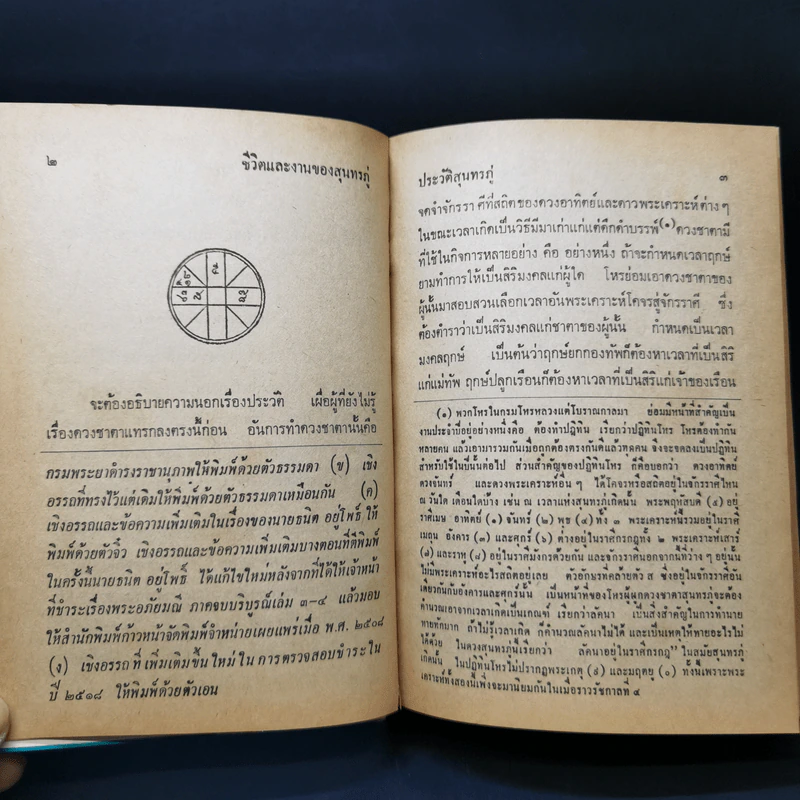 ๒
ชีวิตและงานของสุนทรภู่
จะต้องอธิบายความนอกเรื่องประวัติ เผื่อผู้ที่ยังไม่รู้
เรื่องดวงชาตาแทรกลงตรงนี้ก่อน อันการทำดวงชาตานั้นคือ
กรมพระยาดำรงราชานุภาพให้พิมพ์ด้วยตัวธรรมดา (ข) เชิง
อรรถที่ทรงไว้แต่เดิมให้พิมพ์ด้วยตัวธรรมดาเหมือนกัน (ค)
เชิงอรรถและข้อความเพิ่มเติมในเรื่องของนายธนิต อยู่โพธิ์ ให้
พิมพ์ด้วยตัวจิ๋ว เชิงอรรถและข้อความเพิ่มเติมบางตอนที่ตีพิมพ์
ในครั้งนี้นายธนิต อยู่โพธิ์ ได้แก้ไขใหม่หลังจากที่ได้ให้เจ้าหน้า
ที่ชำระเรื่องพระอภัยมณี ภาคจบบริบูรณ์เล่ม ๓-๔ แล้วมอบ
ให้สำนักพิมพ์ก้าวหน้าจัดพิมพ์จำหน่ายเผยแพร่เมื่อ พ.ศ. ๒๕๐๘
(ง) เชิงอรรถที่เพิ่มเติมขึ้นใหม่ในการตรวจสอบชำระใน
ปี ๒๕๑๘ ให้พิมพ์ด้วยตัวเอน
ประวัติสุนทรภู่
๓
จดจำจักรราศีที่สถิตของดวงอาทิตย์และดาวพระเคราะห์ต่าง ๆ
ในขณะเวลาเกิดเป็นวิธีมีมาเก่าแก่แต่ดึกดำบรรพ์(๑) ดวงชาตามี
ที่ใช้ในกิจการหลายอย่าง คือ อย่างหนึ่ง ถ้าจะกำหนดเวลาฤกษ์
ยามทำการให้เป็นสิริมงคลแก่ผู้ใด โหรย่อมเอาดวงชาตาของ
ผู้นั้นมาสอบสวนเลือกเวลาอันพระเคราะห์โคจรสู่จักรราศี ซึ่ง
ต้องตำราว่าเป็นสิริมงคลแก่ชาตาของผู้นั้น กำหนดเป็นเวลา
มงคลฤกษ์ เป็นต้นว่าฤกษ์ยกกองทัพก็ต้องหาเวลาที่เป็นสิริ
แก่แม่ทัพ ฤกษ์ปลูกเรือนก็ต้องหาเวลาที่เป็นสิริแก่เจ้าของเรือน
(๑) พวกโหรในกรมโหรหลวงแต่โบราณกาลมา ย่อมมีหน้าที่สำคัญเป็น
งานประจำปีอยู่อย่างหนึ่งคือ ต้องทำปฏิทิน เรียกว่าปฏิทินโหร โหรต้องทำกัน
หลายคน แล้วเอามารวมกันเมื่อถูกต้องตรงกันดีแล้วทุกคน จึงจะจดลงเป็นปฏิทิน
สำหรับใช้ในปีนั้นต่อไป ส่วนสำคัญของปฏิทินโหร ก็คือบอกว่า ดวงอาทิตย์
ดวงจันทร์ และดวงพระเคราะห์อื่น ๆ ได้โคจรหรือสถิตอยู่ในจักรราศีไหน
ณ วันใด เดือนใดบ้าง เช่น ณ เวลาแห่งสุนทรภู่เกิดนั้น พระพฤหัสบดี (๕) อยู่
ราศีเมษ อาทิตย์ (๑) จันทร์ (๒) พุธ (๔) ทั้ง ๓ พระเคราะห์นี้รวมอยู่ในราศี
เมถุน อังคาร (๓) และศุกร์ (๖) ต่างอยู่ในราศีกรกฎทั้ง ๒ พระเคราะห์เสาร์
(๗) และราหู (๘) อยู่ในราศีมังกรด้วยกัน และจักรราศีนอกจากนี้ที่ว่าง ๆ อยู่นั้น
ไม่มีพระเคราะห์อะไรสถิตอยู่เลย ตัวอักษรที่คล้ายตัว ส ซึ่งอยู่ในจักรราศีอัน
เดียวกันกับอังคารและศุกร์นั้น เป็นหน้าที่ของโหรผู้ผูกดวงชาตาสุนทรภู่จะต้อง
คำนวณเอาจากเวลาเกิดเป็นเกณฑ์ เรียกว่าลัคนา เป็นสิ่งสำคัญในการทำนาย
ทายทักมาก ถ้าไม่รู้เวลาเกิด ก็คำนวณลัคนาไม่ได้ และเป็นเหตุให้ทายอะไรไม่
ได้ด้วย ในดวงสุนทรภู่นี้เรียกว่า ลัคนาอยู่ในราศีกรกฎ" ในสมัยสุนทรภู่
เกิดนั้น ในปฏิทินโหรไม่ปรากฏพระเกตุ (๙) และมฤตยู (๐) ทั้งนี้เพราะพระ
เคราะห์ทั้งสองนี้เพิ่งจะมานิยมกันในเมื่อราวรัชกาลที่ ๔